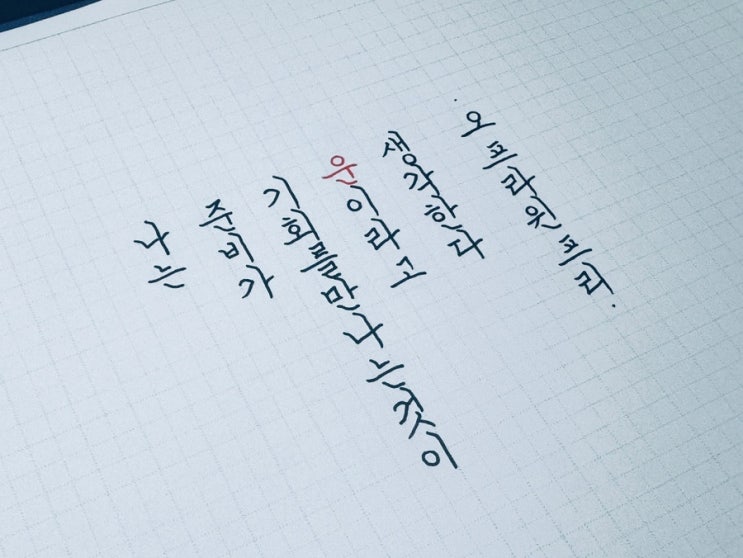 나는
준비가
기회를만나는것이
운이라고
생각한다
오프라윈프리.